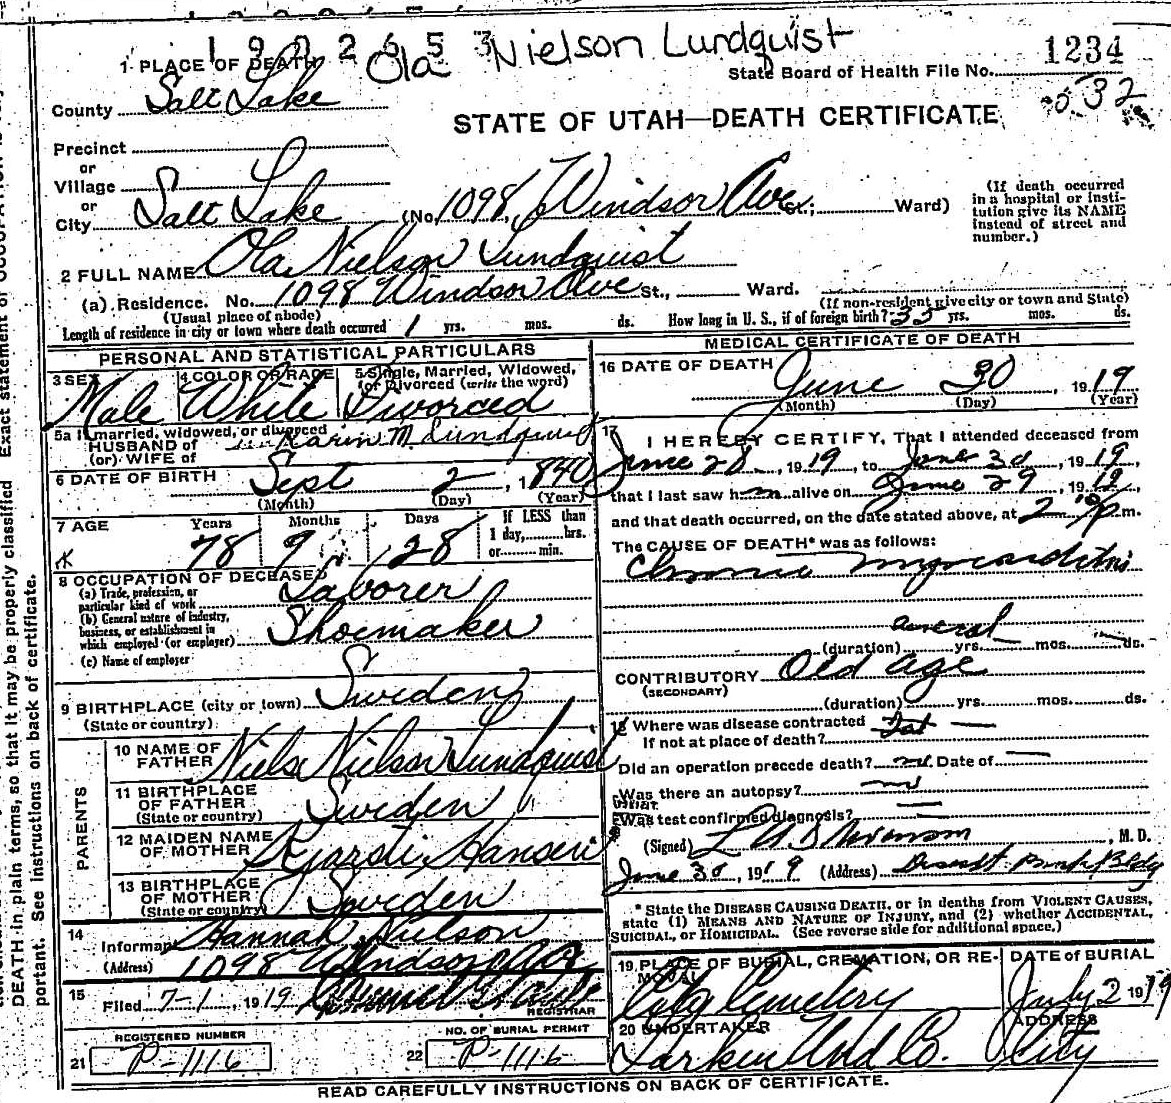 1902653
Ola Nielson Lundquist
1234
1 PLACE OF DEATH
State Board of Health File No.
532
County Salt Lake
STATE OF UTAH—DEATH CERTIFICATE
Precinct
or
Village
or
City Salt Lake (No. 1098 Windsor Ave St.; Ward)
(If death occurred in a hospital or insti-
tution give its NAME instead of street and number.)
2 FULL NAME Ola Nielson Lundquist
(a) Residence. No. 1098 Windsor Ave St., Ward.
(Usual place of abode)
(If non-resident give city or town and State)
Length of residence in city or town where death occurred 1 yrs. mos. ds. How long in U. S., if of foreign birth? 35 yrs. mos. ds.
PERSONAL AND STATISTICAL PARTICULARS
3 SEX
Male
4 COLOR OR RACE
White
5 Single, Married, Widowed,
(or Divorced (write the word)
Divorced
5a If married, widowed, or divorced
HUSBAND of Karin M. Lundquist
(or) WIFE of
6 DATE OF BIRTH Sept 2, 1840
(Month) (Day) (Year)
7 AGE Years Months Days If LESS than
78 9 28 1 day, hrs.
or min.
8 OCCUPATION OF DECEASED
(a) Trade, profession, or
particular kind of work Laborer
(b) General nature of industry,
business, or establishment in
which employed (or employer) Shoemaker
(c) Name of employer
9 BIRTHPLACE (city or town) Sweden
(State or country)
PARENTS
10 NAME OF
FATHER Niels Nielson Lundquist
11 BIRTHPLACE
OF FATHER Sweden
(State or country)
12 MAIDEN NAME
OF MOTHER Kjarsti Hansen
13 BIRTHPLACE
OF MOTHER Sweden
(State or country)
14
Informant Hannah Nielson
(Address) 1098 Windsor Ave
15
Filed 7-1, 1919
REGISTRAR
REGISTERED NUMBER
21 P-1116
NO. OF BURIAL PERMIT
22 P-1116
MEDICAL CERTIFICATE OF DEATH
16 DATE OF DEATH
June 30 1919
(Month) (Day) (Year)
17
I HEREBY CERTIFY, That I attended deceased from
June 28, 1919, to June 30, 1919,
that I last saw him alive on June 29, 1919,
and that death occurred, on the date stated above, at 2 P m.
The CAUSE OF DEATH* was as follows:
Chronic myocarditis
several
(duration) yrs. mos. ds.
CONTRIBUTORY Old age
(SECONDARY)
(duration) yrs. mos. ds.
18 Where was disease contracted
If not at place of death?
Did an operation precede death? no Date of
Was there an autopsy? no
What
Was test confirmed diagnosis?
(Signed) , M. D.
June 30, 1919 (Address) Deseret Bank Bldg
* State the DISEASE CAUSING DEATH, or in deaths from VIOLENT CAUSES,
state (1) MEANS AND NATURE OF INJURY, and (2) whether ACCIDENTAL,
SUICIDAL, or HOMICIDAL. (See reverse side for additional space.)
19 PLACE OF BURIAL, CREMATION, OR RE-
MOVAL
City Cemetery
DATE OF BURIAL
July 2 1919
20 UNDERTAKER
Larkin Und Co.
ADDRESS
City
READ CAREFULLY INSTRUCTIONS ON BACK OF CERTIFICATE.
DEATH in plain terms, so that it may be properly classified Exact statement of OCCUPATION is very
portant. See instructions on back of certificate.